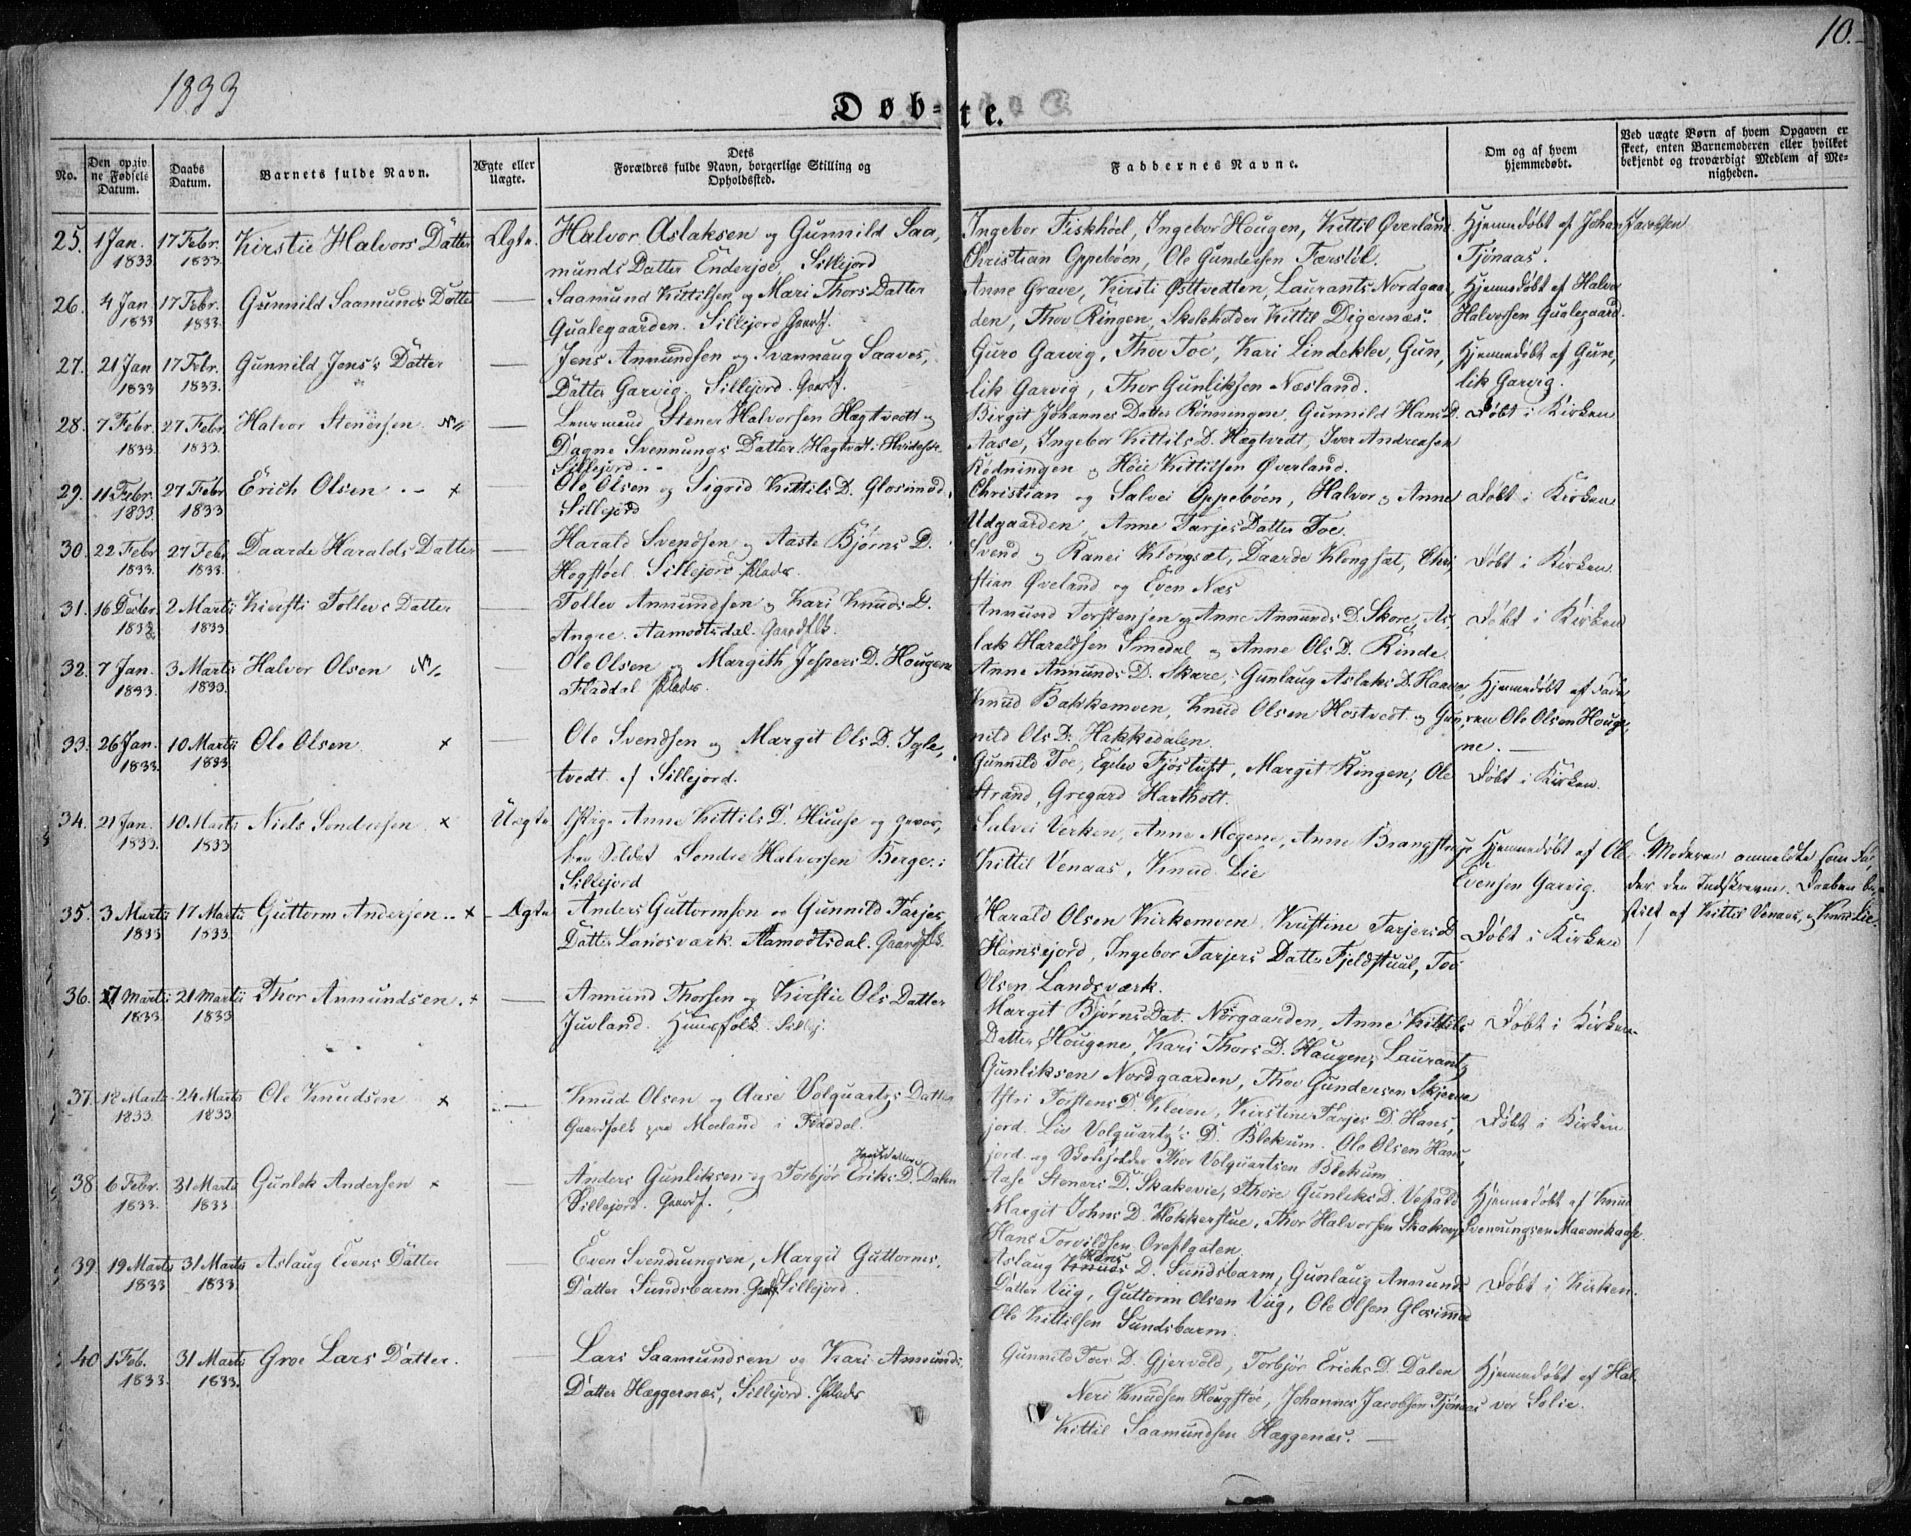 1833
10.
Døb-te.
No.
Den opgivne Fødsels Datum.
Daabs Datum.
Barnets fulde Navn.
Ægte eller Uægte.
Dets Forældres fulde Navn, borgerlige Stilling og Opholdssted.
Faddernes Navne.
Om og af hvem hjemmedøbt.
Ved uægte Børn af hvem Opgaven er skeet, enten Barnemoderen eller hvilket bekjendt og troværdigt Medlem af Menigheden.
25. 1 Jan. 1833 17 Febr. 1833. Kirstie Halvors Datter Ægte. Halvor Aslaksen og Gunnild Saa,
munds Datter Enderjoe, Sillejord
Ingebor Fiskhoel, Ingebor Hougen, Kittil Øverland
Christian Oppebøen, Ole Gundersen Færstøl.
Hjemmedøbt af Johan Jacobsen
Tjønaas.
26. 4 Jan 1833 17 Febr. 1833. Gunnild Saamunds Datter — Saamund Kittilsen og Mari Thors Datter
Qualegaarden. Sillejord Gaardf.
Anne Grave, Kirsti Østtvedten, Laurants Nordgaar
den, Thor Ringen, Skoleholder Kittil Digernæs.
Hjemmedøbt af Halvor
Halvorsen Qualegaard.
27. 21 Jan 1833 17 Febr. 1833. Gunnild Jens's Datter — Jens Anmundsen og Svannaug Saaves,
Datter Garvig. Sillejord. Gaardf.
Guro Garvig, Thor Toe, Kari Lindeklev, Gun,
lik Garvig, Thor Gunliksen Næsland.
Hjemmedøbt af Gun,
lik Garvig.
28. 7 Febr. 1833. 27 Febr 1833. Halvor Stenersen — Lensmand Stener Halvorsen Hægtvedt og
Dagne Svennungs Datter Hægtvedt i
Sillejord --
Birgit Johannes Datter Rønningene, Gunnild Hans D.
Aase, Ingebor Kittils D. Hægtvedt, Iver Andreasen
Rødningen og Høie Kittilsen Øverland.
Døbt i Kirken
29. 11 Febr. 1833. 27 Febr 1833 Erich Olsen. - x — Ole Olsen og Sigrid Kittils D. Glosimod,
Sillejord
Christian og Salvei Oppebøen, Halvor og Anne
Udgaarden, Anne Tarjes Datter Toe.
Døbt i Kirken
30. 22 Febr 1833. 27 Febr 1833. Daarde Haralds Datter — Harald Svendsen og Aaste Bjørns D.
Hogstoel Sillejord Plads.
Svend og Ranei Klongsæt, Daarde Klongsæt, Chri,
stian Øveland og Even Næs
Døbt i Kirken.
31. 16 Decbr. 1832 2 Martii 1833 Kiersti Tollevs Datter — Tollev Anmundsen og Kari Knuds D.
Angre. Aamodtsdal. Gaardflk.
Anmund Torstensen og Anne Anmunds D. Skore, As,
lak Hareldsen Smedal og Anne Ols D. Rinde.
Døbt i Kirken
32. 7 Jan. 1833. 3 Martii 1833. Halvor Olsen — Ole Olsen og Margith Jespers D. Hougene
Fladdal Plads.
Anne Anmunds D. Skare, Gunlaug Aslaks D. Haave,
Knud Bakkemoen, Knud Olsen Hostvedt og Gun,
nild Ols D. Hakkedalen.
Hjemmedøbt af Fade,
ren Ole Olsen Houge,
ne. —
33. 26 Jan. 1833. 10 Martii 1833. Ole Olsen. x — Ole Svendsen og Margit Ols D. Igle,
tvedt i Sillejord.
Gunnild Toe, Egelev Fjøstuft, Margit Ringen, Ole
Strand, Gregard Harthott.
Døbt i Kirken.
34. 21 Jan. 1833. 10 Martii 1833 Niels Sondresen x Uægte Pige Anne Kittils D. Huuse og gevor,
ben Soldat Sondre Halvorsen Berge i
Sillejord
Salvei Verken, Anne Mogene, Anne Brangstue
Kittil Venaas, Knud Lie
Hjemmedøbt af Ole
Evensen Garvig.
Moderen anmeldte som Fa,
der den Indskrevne. Daaben be,
stilt af Kittil Venaas, og Knud Lie.
35. 3 Martii 1833 17 Martii 1833. Guttorm Andersen. - x - Ægte Anders Guttormsen og Gunnild Tarjes,
Datter Landsvark. Aamodtsdal. Gaardflk.
Harald Olsen Kirkemoen, Kristine Tarjers D
Hamsejord, Ingebor Tarjers Datter Fjeldstuul, Tov
Olsen Landsværk.
Døbt i Kirken
36. 17 Martii 1833. 21 Martii 1833 Thor Anmundsen. x — Anmund Thorsen og Kirstie Ols Datter
Juvland. Huusfolk. Sillej.
Margit Bjørns Dat. Norgaarden, Anne Kittils
Datter Hougene, Kari Thors D. Haugen, Laurants
Gunliksen Nordgaarden, Thor Gundersen Skjerne
Døbt i Kirken
37. 12 Martii 1833. 24 Martii 1833. Ole Knudsen x — Knud Olsen og Aase Volquartz Datter
Gaardfolk paa Moeland i Fladdal.
Astri Torstens D. Kleven, Kirstine Tarjes D. Hans,
jord. Liv Volquartz's D. Blekum. Ole Olsen Hans,
jord. og Skoleholder Thor Volquartsen Blekum
Døbt i Kirken
38. 6 Febr. 1833. 31 Martii 1833 Gunlek Andersen x — Anders Gunliksen og Torbjør Eriks D. Dalen
Sillejord. Gaardf.
Aase Steners D. Skakevie, Thore Gunleks D. Vefald
Margit Johns D. Hokkerstue, Thor Halvorsen Skakevje
Hans Torvildsen
Hjemmedøbt af Knud
Svennungsen
39. 19 Martii 1833 31 Martii 1833. Aslaug Evens Datter — Even Svennungsen, Margit Guttorms,
Datter Sundsbarm. Gaardf. Sillejord.
Aslaug Hans D. Sundsbarm, Gunlaug Anmunds
Datter Viig, Guttorm Olsen Viig, Ole Olsen Glosimod
Ole Kittilsen Sundsbarm.
Døbt i Kirken.
40 1 Feb. 1833. 31 Martii 1833. Groe Lars Datter. — Lars Saamundsen og Kari Anmunds,
Datter Hæggernæs, Sillejord. Plads
Gunnild Tovs D. Gjervold, Torbjør Erichs D. Dalen
Neri Knudsen Hougstøe, Johannes Jacobsen Tjønaas
Kittil Saamundsen Hæggenæs. —
Hjemmedøbt af Hal,
vor Solie.